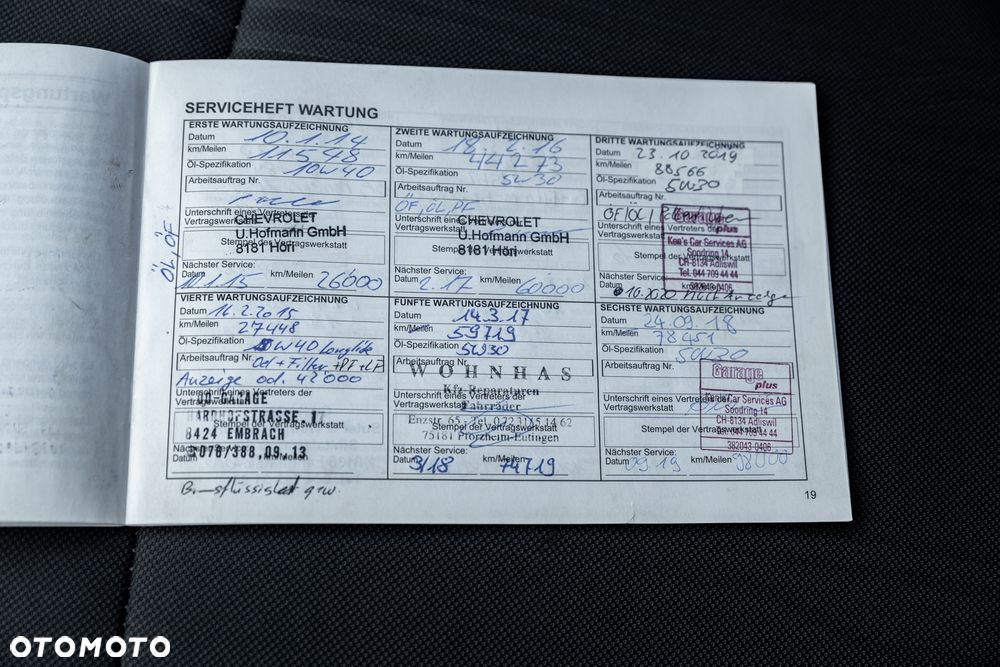 SERVICEHEFT WARTUNG
ERSTE WARTUNGSAUFZEICHNUNG
Datum 10.1.14
km/Meilen 11548
Öl-Spezifikation 10W40
Arbeitsauftrag Nr.
Unterschrift eines Vertreters der
Vertragswerkstatt
CHEVROLET
U.Hofmann GmbH
8181 Höri
Stempel der Vertragswerkstatt
Nächster Service:
Datum 10.1.15 km/Meilen 26000
ÖL, ÖF
ZWEITE WARTUNGSAUFZEICHNUNG
Datum 18.2.16
km/Meilen 44273
Öl-Spezifikation 5W30
Arbeitsauftrag Nr.
ÖF, ÖL, PF
Unterschrift eines
Vertragswerkstatt
CHEVROLET
U.Hofmann GmbH
8181 Höri
Stempel der Vertragswerkstatt
Nächster Service:
Datum 2.17 km/Meilen 60000
DRITTE WARTUNGSAUFZEICHNUNG
Datum 23.10.2019
km/Meilen 88566
Öl-Spezifikation 5W30
Arbeitsauftrag Nr.
Unterschrift eines Vertreters der
Vertragswerkstatt
Garage
plus
Ken's Car Services AG
Soodring 14
CH-8134 Adliswil
Tel. 044 709 44 44
382043-0406
Stempel der Vertragswerkstatt
Nächster Service:
Datum 10.2020 km/Meilen
VIERTE WARTUNGSAUFZEICHNUNG
Datum 16.2.2015
km/Meilen 27448
Öl-Spezifikation 5W40 Longlife
Arbeitsauftrag Nr. Oel + Filter + PF + LF
Anzeige od. 42000
Unterschrift eines Vertreters der
Vertragswerkstatt
GARAGE
HARDHOFSTRASSE 17
8424 EMBRACH
Stempel der Vertragswerkstatt
Nächster Service:
Datum km/Meilen
076/388.09.13
Bremsflüssigkeit gew.
FÜNFTE WARTUNGSAUFZEICHNUNG
Datum 14.3.17
km/Meilen 59719
Öl-Spezifikation 5W30
Arbeitsauftrag Nr.
WOHNHAS
Kfz-Reparaturen
Fahrräder
Unterschrift eines Vertreters der
Vertragswerkstatt
Enzstr. 65 · Tel. 07231/5 14 62
75181 Pforzheim-Eutingen
Stempel der Vertragswerkstatt
Nächster Service:
Datum 3/18 km/Meilen 74719
SECHSTE WARTUNGSAUFZEICHNUNG
Datum 24.09.18
km/Meilen 78451
Öl-Spezifikation 5W30
Arbeitsauftrag Nr.
Garage
plus
Unterschrift eines Vertreters der
Vertragswerkstatt
Ken's Car Services AG
Soodring 14
CH-8134 Adliswil
Tel. 044 709 44 44
382043-0406
Stempel der Vertragswerkstatt
Nächster Service:
Datum 09.19 km/Meilen 98000
19
OTOMOTO